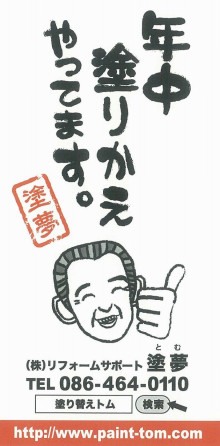 年中
塗りかえ
やってます。
塗夢
とむ
(株)リフォームサポート 塗夢
TEL 086-464-0110
塗り替えトム 検索
http://www.paint-tom.com